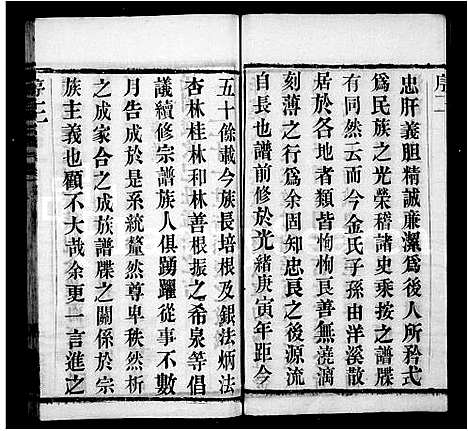 序二
忠肝義膽精誠廉潔爲後人所矜式
爲民族之光榮稽諸史乘按之譜牒
有同然云而今金氏子孫由洋溪散
居於各地者類皆恂恂良善無澆漓
刻薄之行爲余固知忠良之後源流
自長也譜前修於光緒庚寅年距今
五十餘載今族長培根及銀法炳法
杏林桂林和林善根振之希泉等倡
議續修宗譜族人俱踴躍從事不數
月告成於是系統釐然尊卑秩然析
之成家合之成族譜牒之關係於宗
族主義也顧不大哉余更一言進之